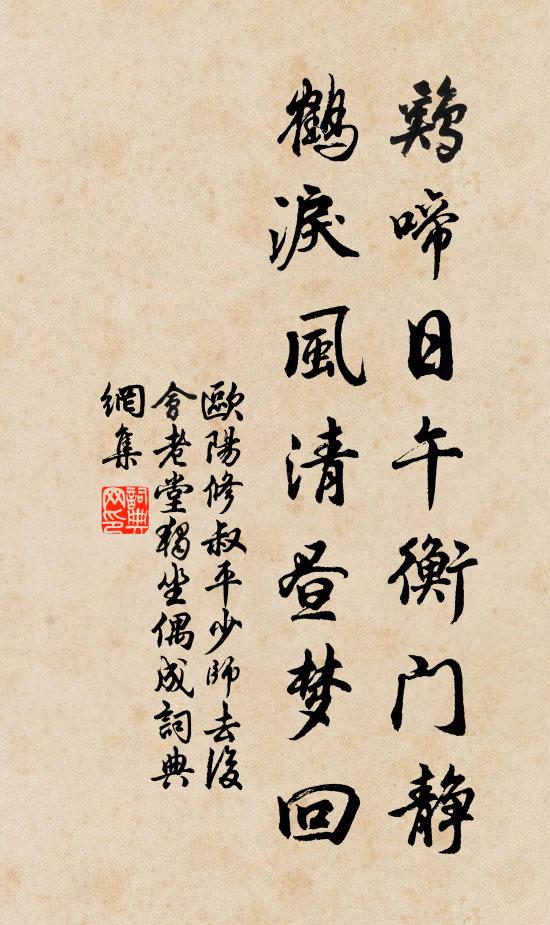 鷄啼日午衡门静
鶴淚風清昼梦回
歐陽修叔平少師去後
會老堂獨坐偶成詞典
網集
詞典
网印